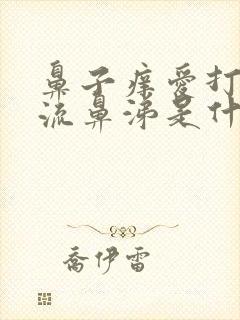 鼻子痒爱打
流鼻涕是什
乔伊雷